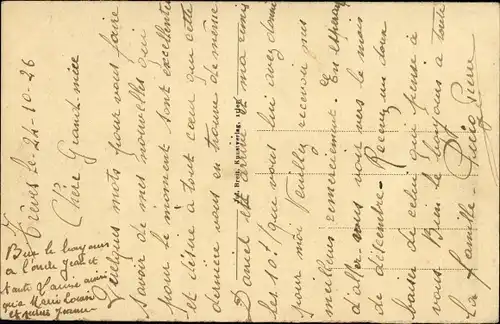 Trèves le 24-10-26
Chère Grand-mère
Quelques mots pour vous faire
savoir de mes nouvelles qui
pour le moment sont excellentes
et désire à tout cœur que cette
dernière vous en trouve de même
Daniel est arrivé et m'a remis
les 10f que vous lui avez donné
pour moi Veuillez recevoir mes
meilleurs remerciement. En espérant
d'aller vous voir vers le mois
de décembre. Recevez un doux
baiser de celui qui pense à
vous Bien le bonjour à toute
la famille.
Bien le bonjour
a l'oncle Jean et
tante
qu'a Marie Louise
et
Kunstverlag,